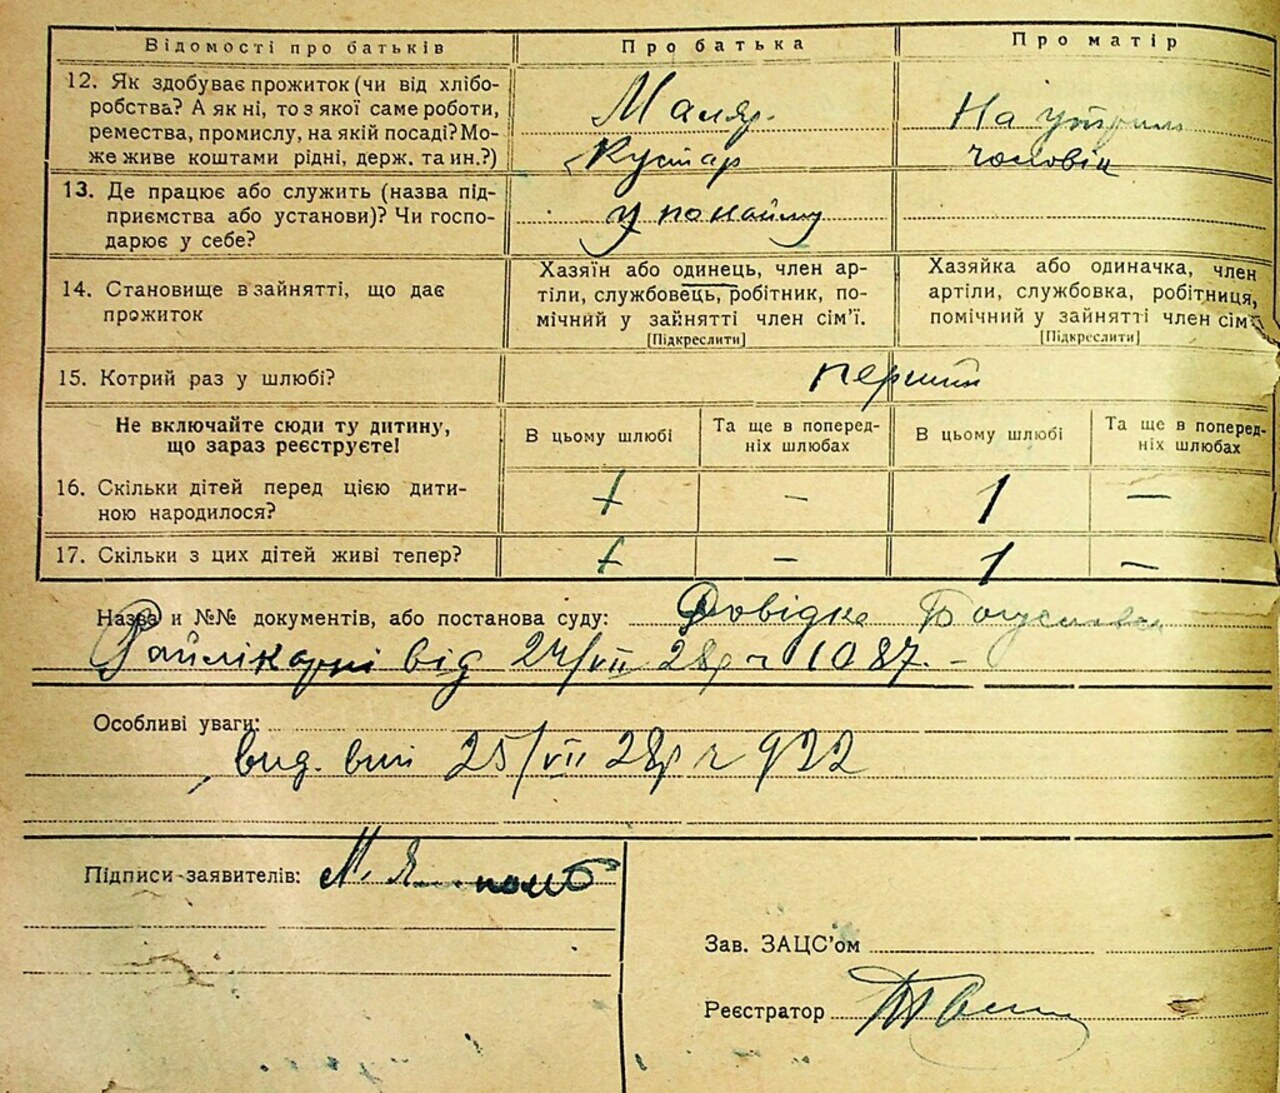 Відомості про батьків
Про батька
Про матір
12. Як здобуває прожиток (чи від хлібо-
робства? А як ні, то з якої саме роботи,
ремества, промислу, на якій посаді? Мо-
же живе коштами рідні, держ. та ин.?)
Маляр.
Кустар
На утрим
чоловік
13. Де працює або служить (назва під-
приємства або установи)? Чи госпо-
дарює у себе?
у понайму
14. Становище в зайнятті, що дає
прожиток
Хазяїн або одинець, член ар-
тіли, службовець, робітник, по-
мічний у зайнятті член сім’ї.
[Підкреслити]
Хазяйка або одиначка, член
артіли, службовка, робітниця,
помічний у зайнятті член сім’ї
[Підкреслити]
15. Котрий раз у шлюбі?
перший
Не включайте сюди ту дитину,
що зараз реєструєте!
В цьому шлюбі
Та ще в поперед-
ніх шлюбах
В цьому шлюбі
Та ще в поперед-
ніх шлюбах
16. Скільки дітей перед цією дити-
ною народилося?
1 – 1 –
17. Скільки з цих дітей живі тепер?
1 – 1 –
Назва и №№ документів, або постанова суду: Довідка Богуславск
Райлікарні від 24/VII 28р ч 1087. –
Особливі уваги:
вид. вип 25/VII 28р ч 922
Підписи заявителів: М. Я
Зав. ЗАЦС’ом
Реєстратор